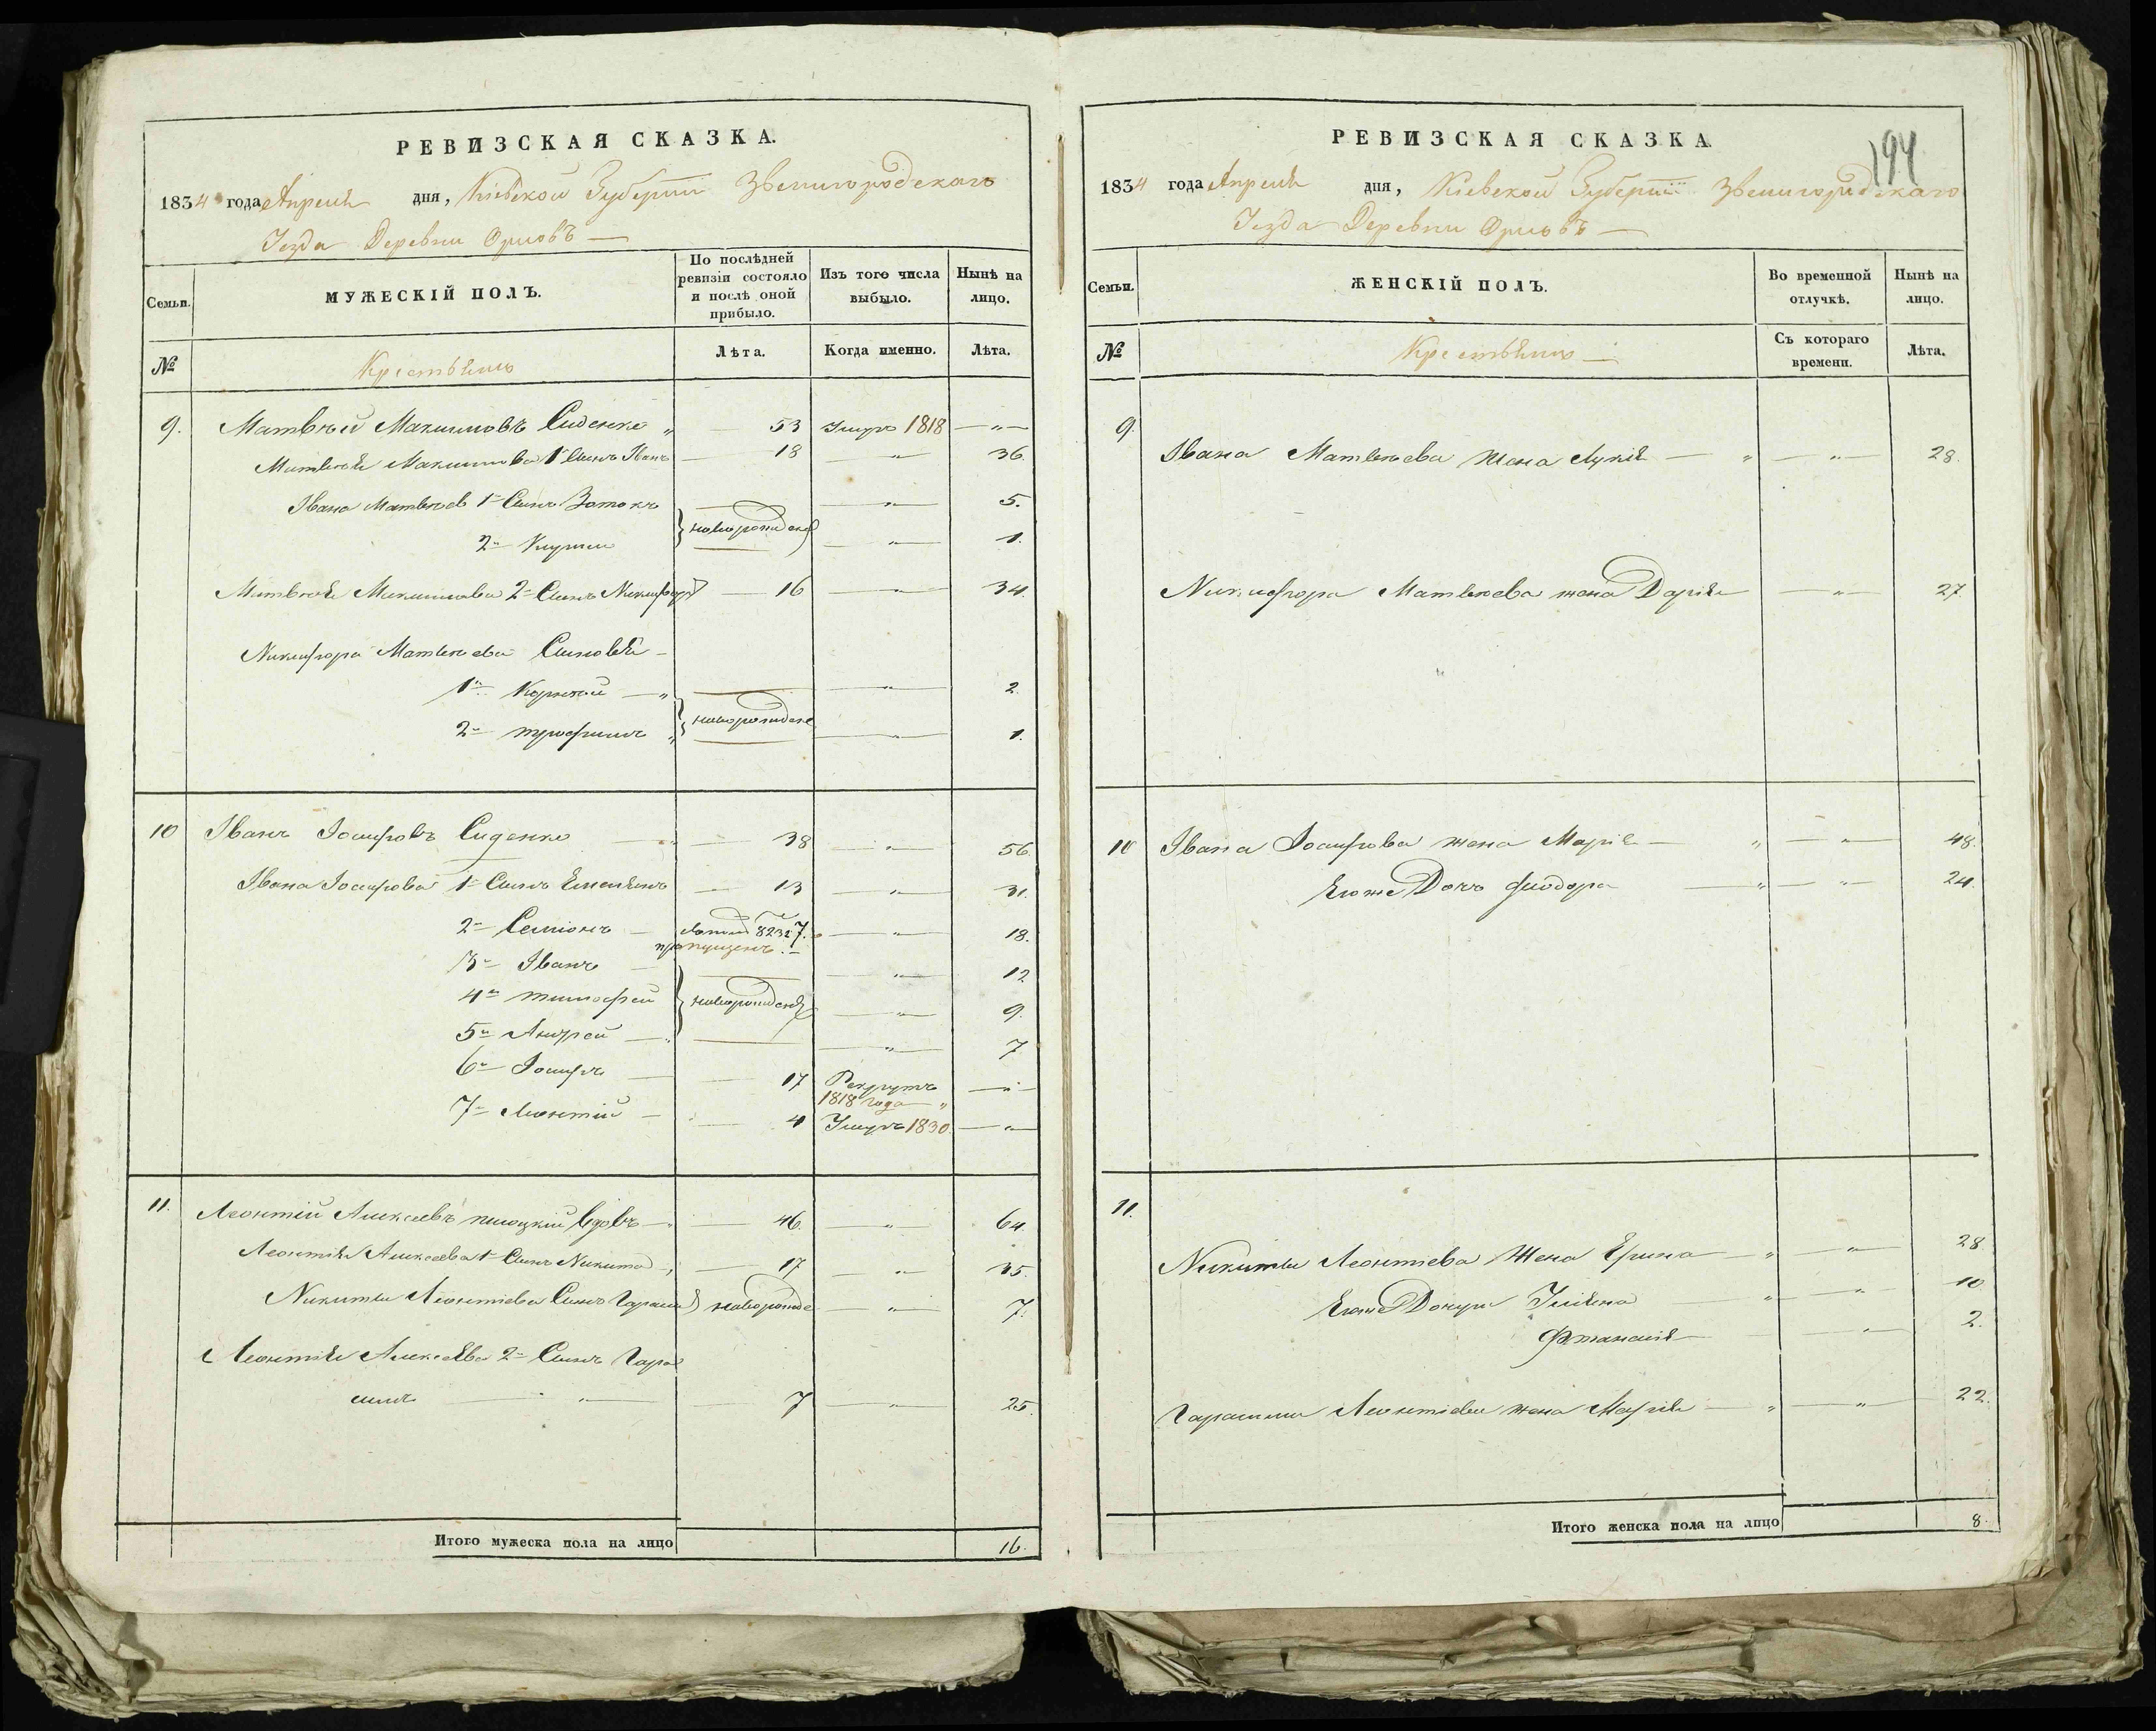 РЕВИЗСКАЯ СКАЗКА.
1834 года Апреля дня, Кіевской Губерніи Звенигородскаго
Уезда Деревни Орловъ
Семьи.
МУЖЕСКІЙ ПОЛЪ.
По послѣдней ревизіи состояло и послѣ оной прибыло.
Изъ того числа выбыло.
Нынѣ на лицо.
№
Крестьяне
Лѣта.
Когда именно.
Лѣта.
9. Матвѣй Максимовъ Сиденко „ — 53 Умеръ 1818 — „ —
Матвѣя Максимова 1й Сынъ Іванъ — 18 — „ — 36.
Івана Матвѣев 1й Сынъ — „ — 5.
новорожден
2й — „ — 1.
Матвѣя Максимова 2й Сынъ Никифоръ — 16 — „ — 34.
Никифора Матвѣева Сыновья —
1й Корнѣй — „ — „ — 2.
новорожден
2й трофимъ „ — „ — 1.
10 Іванъ Іосифовъ Сиденко — 38 — „ — 56.
Івана Іосифова 1й Сынъ Емельянъ — 13 — „ — 31.
2й Семіонъ — — „ — 18.
пропущенъ. —
3й Іванъ — — „ — 12
4й тимофей новорожден — „ — 9.
5й Андрей — „ — „ — 7
6й Іосифъ — 17 Рекрутъ — „ —
1818 года „
7й Леонтій — 4 Умеръ 1830. — „
11. Леонтій Алексеевъ вдовъ — „ — 46. — „ — 64.
Леонтія Алексеева 1й Сынъ Никита — 17 — „ — 35.
Никиты Леонтіева Сынъ новорожде — „ — 7.
Леонтія Алексеева 2й Сынъ Гара
симъ — „ — 7 — „ — 25.
Итого мужеска пола на лицо 16.
194
РЕВИЗСКАЯ СКАЗКА.
1834 года Апреля дня, Кіевской Губерніи Звенигородскаго
Уезда Деревни Орловъ —
Семьи.
ЖЕНСКІЙ ПОЛЪ.
Во временной отлучкѣ.
Нынѣ на лицо.
№
Крестьяне —
Съ котораго времени.
Лѣта.
9.
Івана Матвѣева Жена Лукія — „ — „ — 28.
Никифора Матвѣева жена Дарія — „ — 27.
10 Івана Іосифова жена Марія — „ — „ — 48.
Егоже Дочь феодора — „ — „ — 24.
11.
Никиты Леонтіева Жена Ерина — „ — „ — 28.
Егоже Дочери Уліяна — „ — „ — 10
— „ — 2.
Гарасима Леонтіева жена Марія — „ — „ — 22.
Итого женска пола на лицо 8.